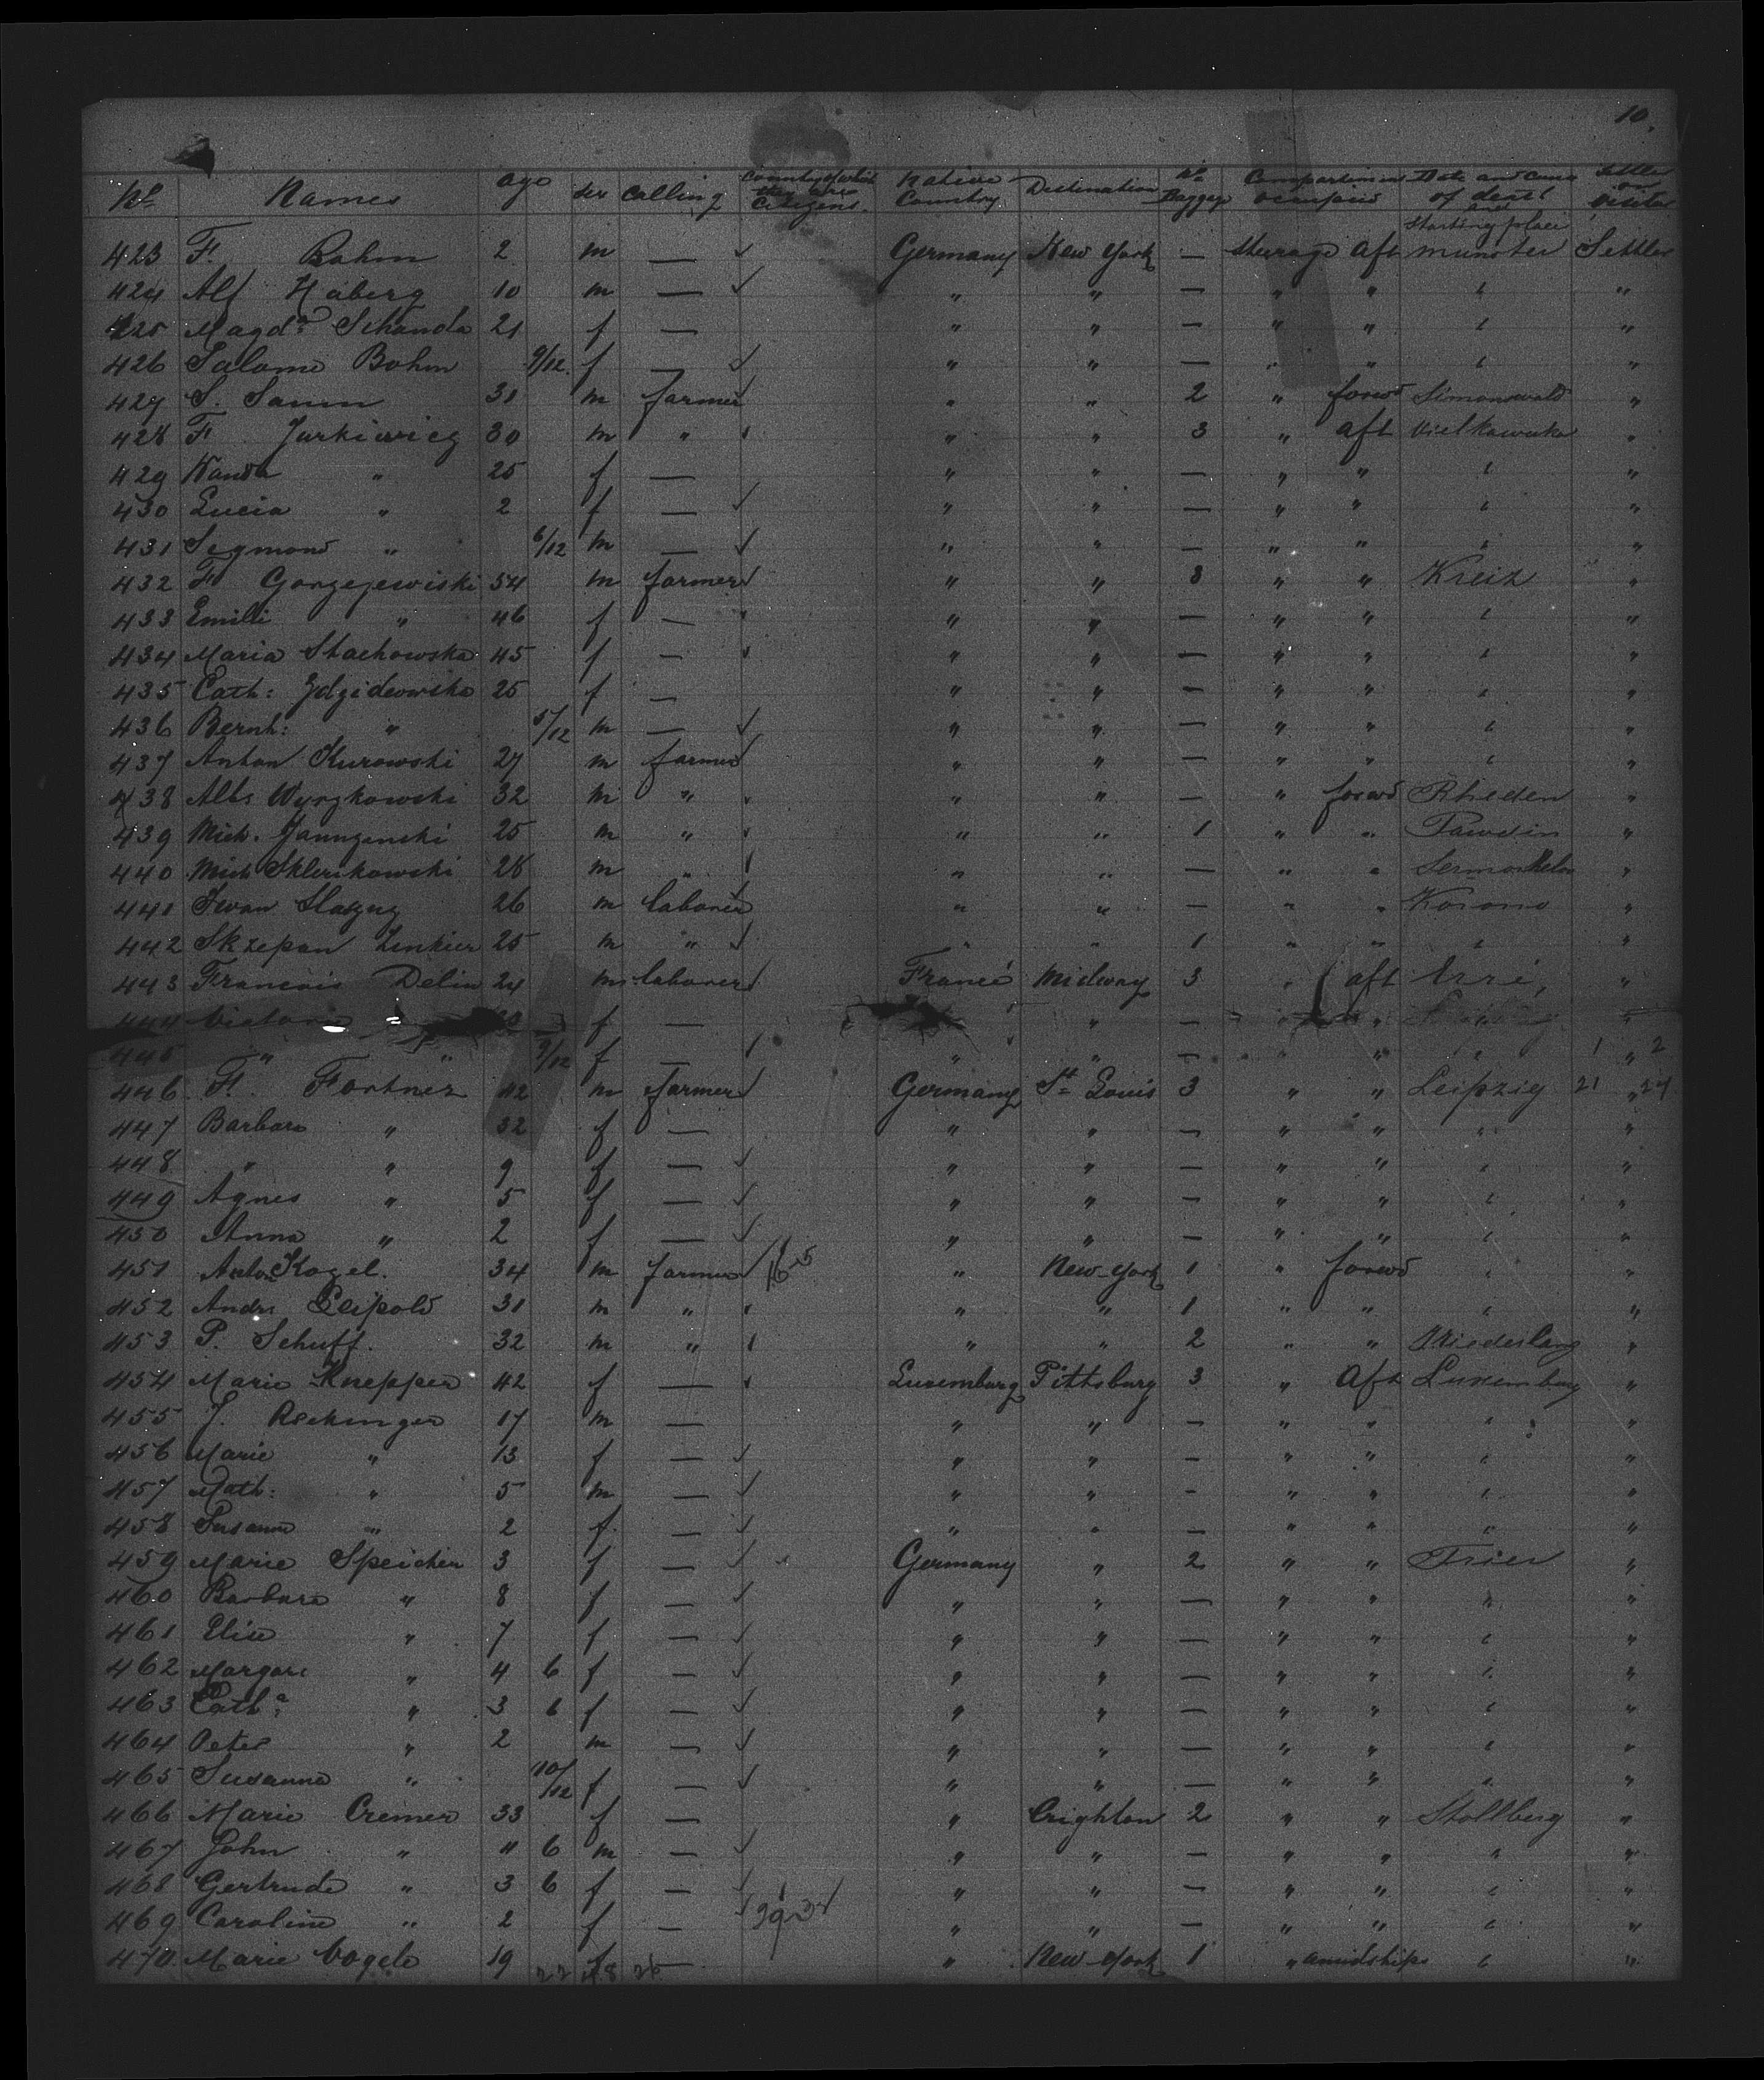 10.
No Names age sex Calling Country of which they are Citizens. Native Country Destination No Baggage Compartment occupied Date and Cause of death and Starting place Settler or Visitor
423 F. Bohm 2 m — ✓ Germany New York — Steerage aft Munster Settler
424 Alf Haberg 10 m — ✓ " " — " " " "
425 Magda Schanda 21 f — " " — " " " "
426 Salome Bohm 9/12. f — ✓ " " — " " " "
427 S. Saum 31 m farmer ✓ " " 2 " forwd Simonswald "
428 F Jurkiewicz 30 m " " " 3 " aft "
429 Wanda " 25 f — " " — " " " "
430 Lucia " 2 f — ✓ " " — " " " "
431 Segmond " 6/12 m — ✓ " " — " " " "
432 F Gorzejewiski 54 m farmer ✓ " " 3 " " Kreiz "
433 Emilie " 46 f — " " — " " " "
434 Maria Stachowska 45 f — " " — " " " "
435 Cath: 25 f — " " — " " " "
436 Bernh: " 5/12 m — ✓ " " — " " " "
437 Anton Kurowski 27 m farmer ✓ " " — " " " "
438 Albs Wyrzkowski 32 m " " " — " forwd Rheden "
439 Mich. 25 m " " " 1 " " "
440 Mich Sklerikowski 28 m " " " — " " "
441 Iwan 26 m laborer ✓ " " — " " Korono "
442 Skzepan 25 m " ✓ " " 1 " " " "
443 Francois Delin 24 m laborer ✓ France Midway 3 " aft "
444 Victoria f — " — " " "
445 " " 9/12 f — " " — " " " 1 " 2
446 F. Fortner 42 m farmer ✓ Germany St Louis 3 " " Leipzig 21 " 24
447 Barbara " 32 f — " " — " " " "
448 " " 9 f — ✓ " " — " " " "
449 Agnes " 5 f — ✓ " " — " " " "
450 Anna " 2 f — ✓ " " — " " " "
451 Anton Kogel. 34 m farmer ✓ " New York 1 " forwd " "
452 Andr. Leipold 31 m " " " 1 " " " "
453 P. Schuff. 32 m " " " 2 " " "
454 Marie Knepper 42 f — Luxemburg Pittsburg 3 " aft Luxemburg "
455 J. Reckinger 17 m — " " — " " " "
456 Marie " 13 f — ✓ " " — " " " "
457 Math: " 5 m — ✓ " " - " " " "
458 Susanne " 2 f. — ✓ " " — " " " "
459 Marie Speicher 3 f — ✓ Germany " 2 " " Trier "
460 Barbara " 8 f — ✓ " " — " " " "
461 Elise " 7 f — ✓ " " — " " " "
462 Margare " 4 6 f — ✓ " " — " " " "
463 Catha " 3 6 f — ✓ " " — " " " "
464 Peter " 2 m — ✓ " " — " " " "
465 Susanne " 10/12 f — ✓ " " — " " " "
466 Marie Cremer 33 f — " Crighton 2 " " Stollberg "
467 John " 11 6 m — ✓ " " — " " " "
468 Gertrude " 3 6 f — ✓ " " — " " " "
469 Caroline " 2 f — " " — " " " "
470. Marie Vogele 19 f — " New York 1 " amidships " "